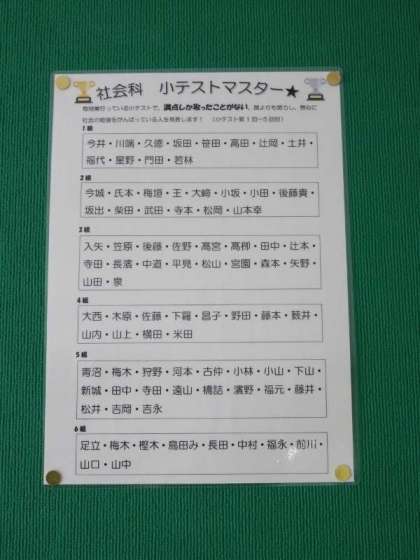 社会科 小テストマスター★
毎時間行っている小テストで、満点しか取ったことがない、誰よりも努力し、熱心に
社会の勉強をがんばっている人を発表します！ （小テスト第1回～5回分）
1組
今井・川端・久徳・坂田・笹田・高田・辻岡・土井・
福代・星野・門田・若林
2組
今城・氏本・梅垣・王・大崎・小坂・小田・後藤貴・
坂出・柴田・武田・寺本・松岡・山本幸
3組
入矢・笠原・後藤・佐野・高宮・高栁・田中・辻本・
寺田・長濱・中道・平見・松山・宮園・森本・矢野・
山田・泉
4組
大西・木原・佐藤・下羅・昌子・野田・藤本・藪井・
山内・山上・横田・米田
5組
青沼・梅木・狩野・河本・古仲・小林・小山・下山・
新城・田中・寺田・遠山・橋詰・濱野・福元・藤井・
松井・吉岡・吉永
6組
足立・梅木・樫木・島田み・長田・中村・福永・前川・
山口・山中